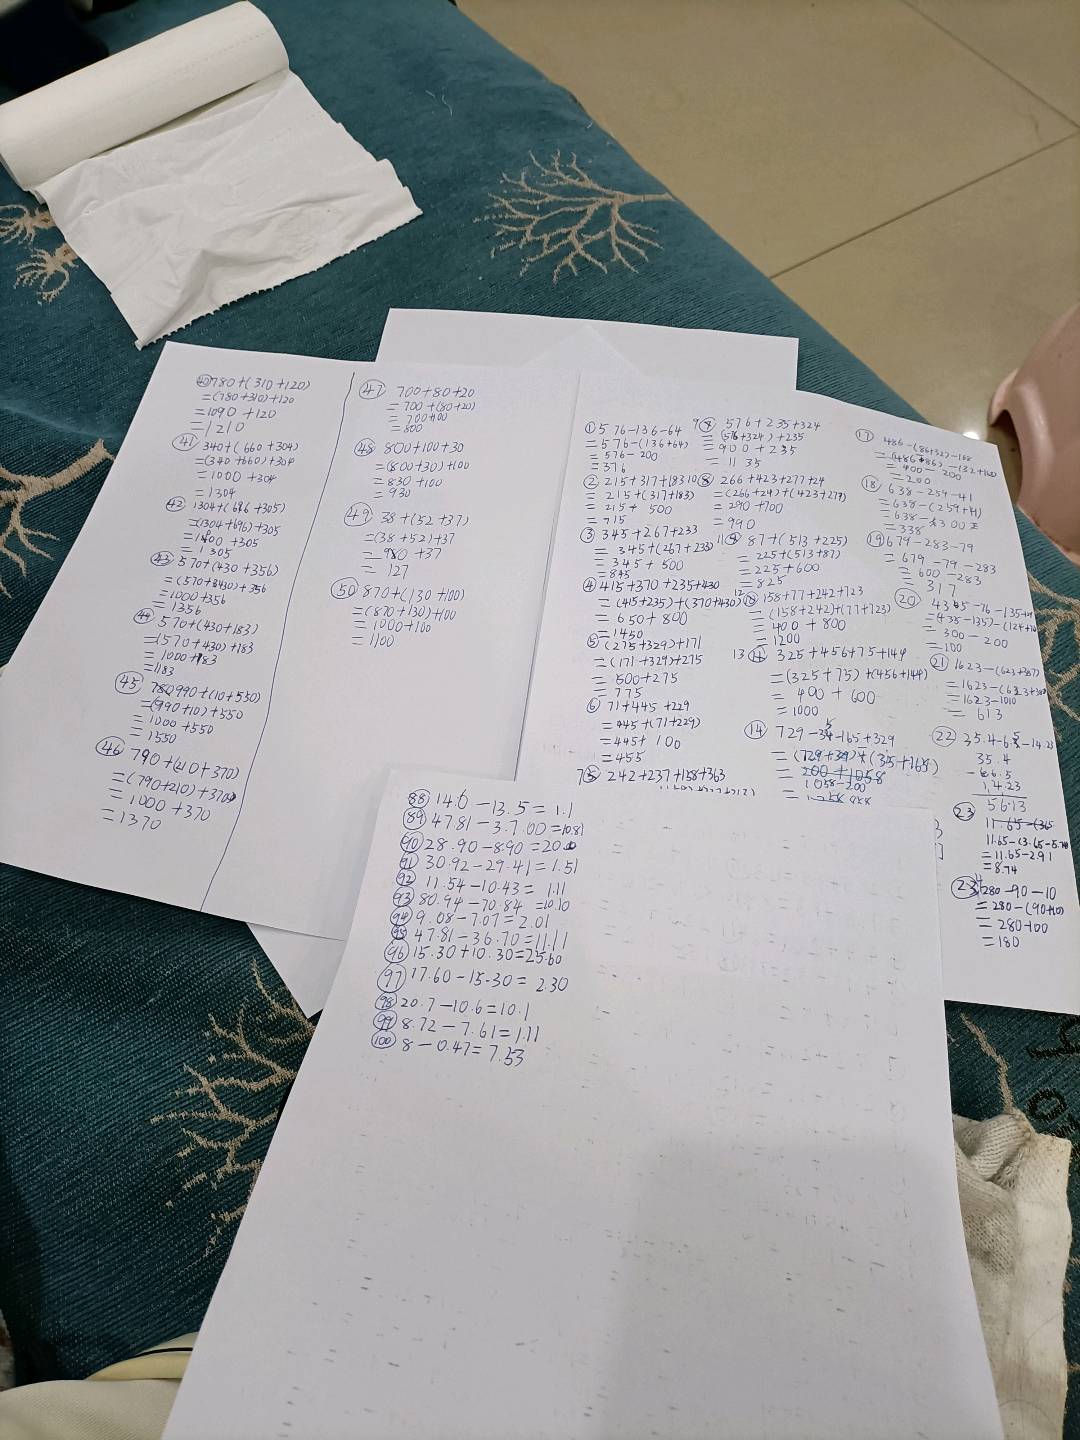 ㊵ 780+(310+120)
=(780+310)+120
=1090+120
=1210
㊶ 340+(660+304)
=(340+660)+304
=1000+304
=1304
㊷ 1304+(696+305)
=(1304+696)+305
+305
=1305
㊸ 570+(430+356)
+356
=1000+356
=1356
㊹ 570+(430+183)
=(570+430)+183
=1000+183
=1183
㊺ 990+(10+550)
=(990+10)+550
=1000+550
=1550
㊻ 790+(210+370)
=(790+210)+370
=1000+370
=1370
㊼ 700+80+20
=700+(80+20)
=700+100
=800
㊽ 800+100+30
=(800+30)+100
=830+100
=930
㊾ 38+(52+37)
=(38+52)+37
+37
=127
㊿ 870+(130+100)
=(870+130)+100
=1000+100
=1100
① 576-136-64
=576-(136+64)
=576-200
=376
② 215+317+183
=215+(317+183)
=215+500
=715
③ 345+267+233
=345+(267+233)
=345+500
=845
④ 415+370+235+430
=(415+235)+(370+430)
=650+800
=1450
⑤ (275+329)+171
=(171+329)+275
=500+275
=775
⑥ 71+445+229
=445+(71+229)
=445+100
=455
7 242+237+158+363
576+235+324
=(576+324)+235
=900+235
=1135
266+423+277+24
=(266+24)+(423+277)
=290+700
=990
11 87+(513+225)
=225+(513+87)
=225+600
=825
12 158+77+242+723
=(158+242)+(77+723)
=400+800
=1200
13 325+456+75+144
=(325+75)+(456+144)
=400+600
=1000
⑭ 729
-165+329
1058-200
⑰ 486-(86+32)-168
=400-200
=200
⑱ 638-259-41
=638-(259+41)
=338
⑲ 679-283-79
=679-79-283
=600-283
=317
⑳
=300-200
=100
㉑ 1623-(623+387)
=1623-1010
=613
㉒ 35.4
35.4
㉓
11.65-(3.65
=11.65-2.91
=8.74
280-90-10
=280-(90+10)
=280-100
=180
88 14.6-13.5=1.1
89 47.81-3.7.00=10.81
90 28.90-8.90=20.0
91 30.92-29.41=1.51
92 11.54-10.43=1.11
93 80.94-70.84=10.10
94 9.08-7.07=2.01
95 47.81-36.70=11.11
96 15.30+10.30=25.60
97 17.60-15.30=2.30
98 20.7-10.6=10.1
99 8.72-7.61=1.11
100 8-0.47=7.53